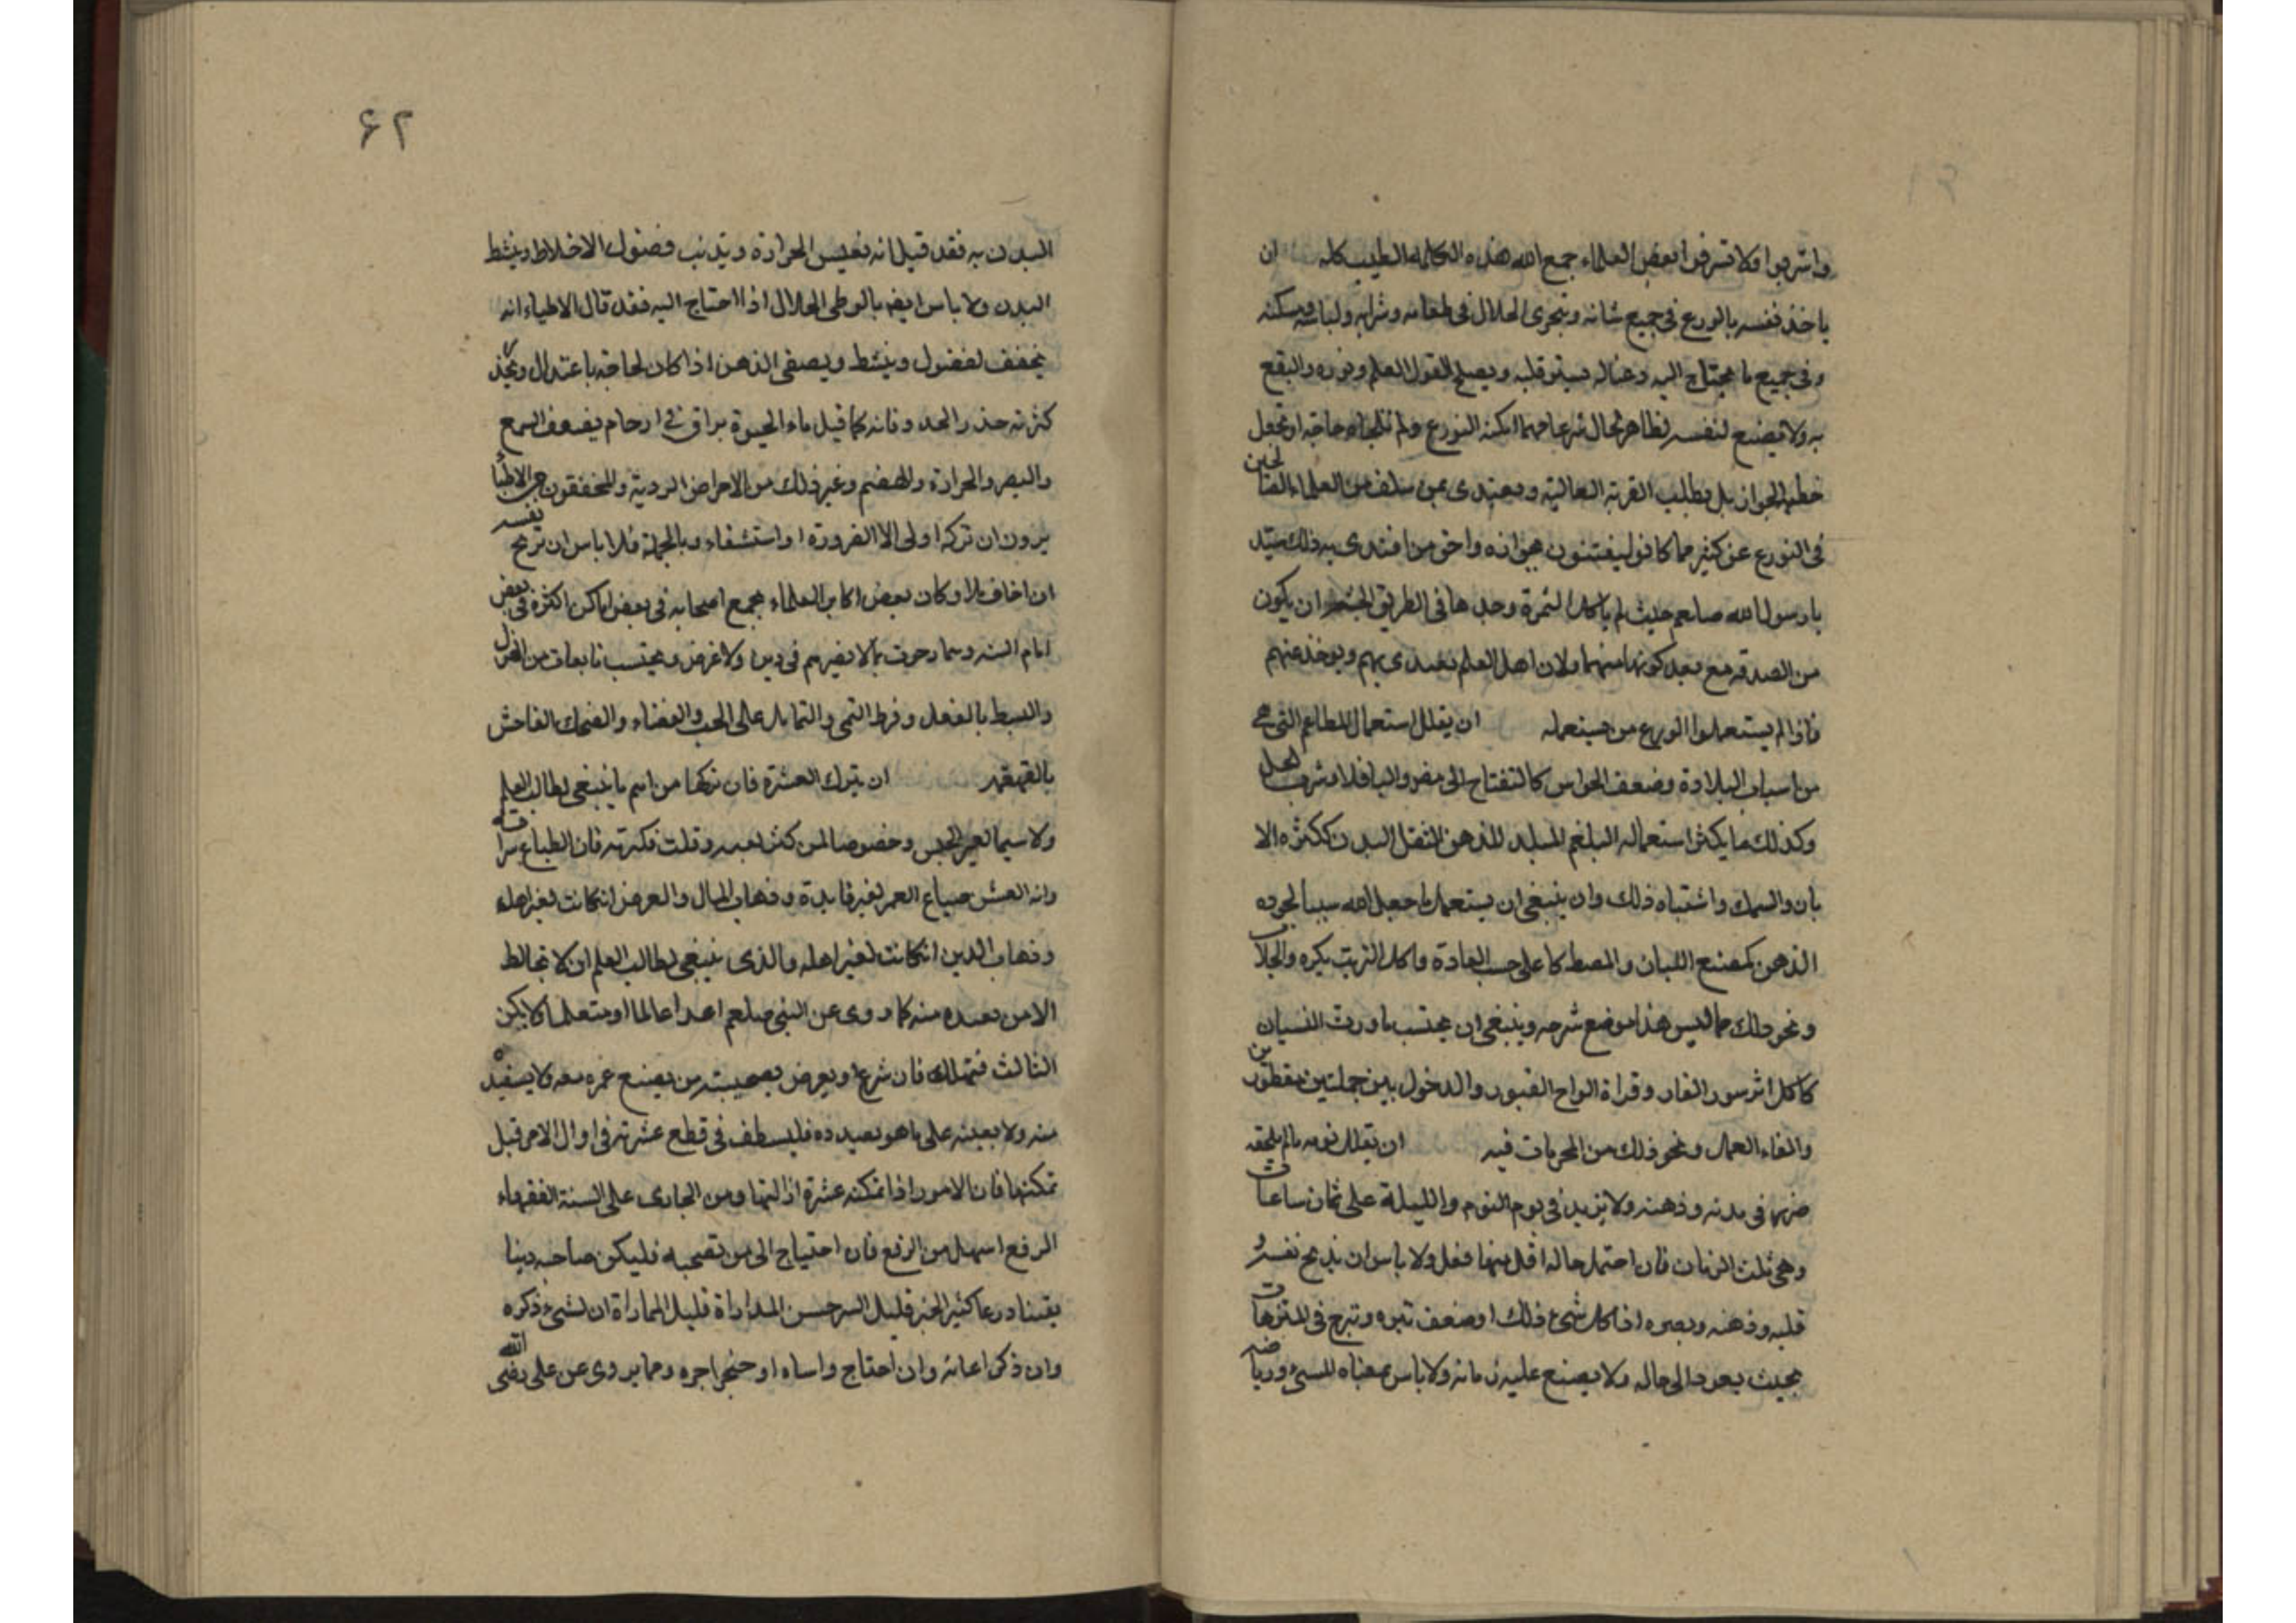 واشربوا ولا تسرفوا بعض العلماء جمع الله هذه الكلمه الطيب كله ان
ياخذ نفسه بالورع فى جميع شانه ويتحرى الحلال فى طعامه وشرابه ولباسه ومسكنه
وفى جميع ما يحتاج اليه وعياله ليستنر قلبه ويصلح لقبول العلم ونوره والنفع
به ولا يقنع لنفسه بظاهر الحال شرعا مهما امكنه التورع ولم تلجاه حاجة او يجعل
حظه الجواز بل يطلب الرتبه العالية ويقتدى بمن سلف من العلماء الصالحين
فى التورع عن كثير مما كانوا يفتنون بجوازه واحق من اقتدى به ذلك سيد
يا رسول الله صلعم حيث لم ياكل التمرة وجدها فى الطريق الخشيه ان يكون
من الصدقه مع بعد كونها منهما ولان اهل العلم يقتدى بهم ويوخذ عنهم
فاذا لم يستعملوا الورع من يستعمله ان يقلل استعمال المطاعم التى هى
من اسباب البلادة وضعف الحواس كالتفاح الحامض والباقلا وشرب الخل
وكذلك ما يكثر استعماله البلغم المبلد للذهن المثقل البدن ككثره الا
بان والسمك واشتباه ذلك وان ينبغى ان يستعمل ما جعل الله سببا لجوده
الذهن كمضغ اللبان والمصطكا على حسب العادة واكل الزبيب بكره والجلاب
ونحو ذلك مما ليس هذا موضع شرحه وينبغى ان يجتنب ما ورث النسيان
كاكل اثر سور الفار وقراة الواح القبور والدخول بين جملين مقطورين
والقاء القمل ونحو ذلك من المجربات فيه ان يقلل نومه ما لم يلحقه
ضرر فى بدنه وذهنه ولا يزيد فى يوم النوم والليلة على ثمان ساعات
وهى ثلث الزمان فان احتمل حاله اقل منها فعل ولا باس ان يريح نفسه و
قلبه وذهنه وبصره اذا كل شئ ذلك او ضعف تنزه وتبرج فى المتنزهات
بحيث يعود الى حاله ولا يضيع عليه زمانه ولا باس بمعناه المشى ورياضه
۶۲
البدن به فقد قيل انه ينعيش الحرارة ويذيب فضول الاخلاط وينشط
البدن ولا باس ايضه بالوطى الحلال اذا احتاج اليه فقد قال الاطباء انه
يخفف الفضول وينشط ويصفى الذهن اذا كان لحاجة باعتدال ويحذر
كثرته حذر العدو فانه كما قيل ماء الحيوة يراق فى ارحام يضعف السمع
والبصر والحرارة والهضم وغير ذلك من الامراض الردية والمحققون من الاطبا
يرون ان تركه اولى الا الضرورة او استشفاء وبالجملة فلا باس ان يريح نفسه
ان اخاف ملا وكان بعض اكابر العلماء يجمع اصحابه فى بعض اماكن اكثره فى بعض
ايام السنه وبما رحوت بما لا يضرهم فى دين ولا عرض ويجتنب نابعات من الغزل
والبسط بالفعل وفرط التمى والتمايل على الجنب والقضاء والضحك الفاحش
بالقهقهه ان يترك العشرة فان تركها من اهم ما ينبغى لطالب العلم
ولا سيما لغير الجنس وخصوصا لمن كثر لعبه وقلت فكرته فان الطباع سراقه
وانه العشر ضياع العمر لغير فايدة وذهاب المال والعرض انكانت لغير اهله
وذهاب الدين انكانت لغير اهله والذى ينبغى لطالب العلم ان لا يخالط
الا من يفيده منه كما روى عن النبى صلعم اغد عالما او متعلما ولا يكن
الثالث فتهلك فان شرع او يعرض بصحبته من يضيع عمره معه ولا يستفيده
منه ولا يعينه على ما هو بصيدده فليسطف فى قطع عشرته فى اوال الامر قبل
تمكنها فان الامور اذا تمكنه عشرة ازالتها ومن الجارى على السنة الفقهاء
الدفع اسهل من الرفع فان احتياج الى من تصحبه فليكن صاحبه دينا
يقينا ورعا كثير الخير قليل السر حسن المداراة قليل المماراة ان لشىء ذكره
وان ذكر اعانه وان احتاج واساه او ضجر اجره ومما يروى عن على رضى الله